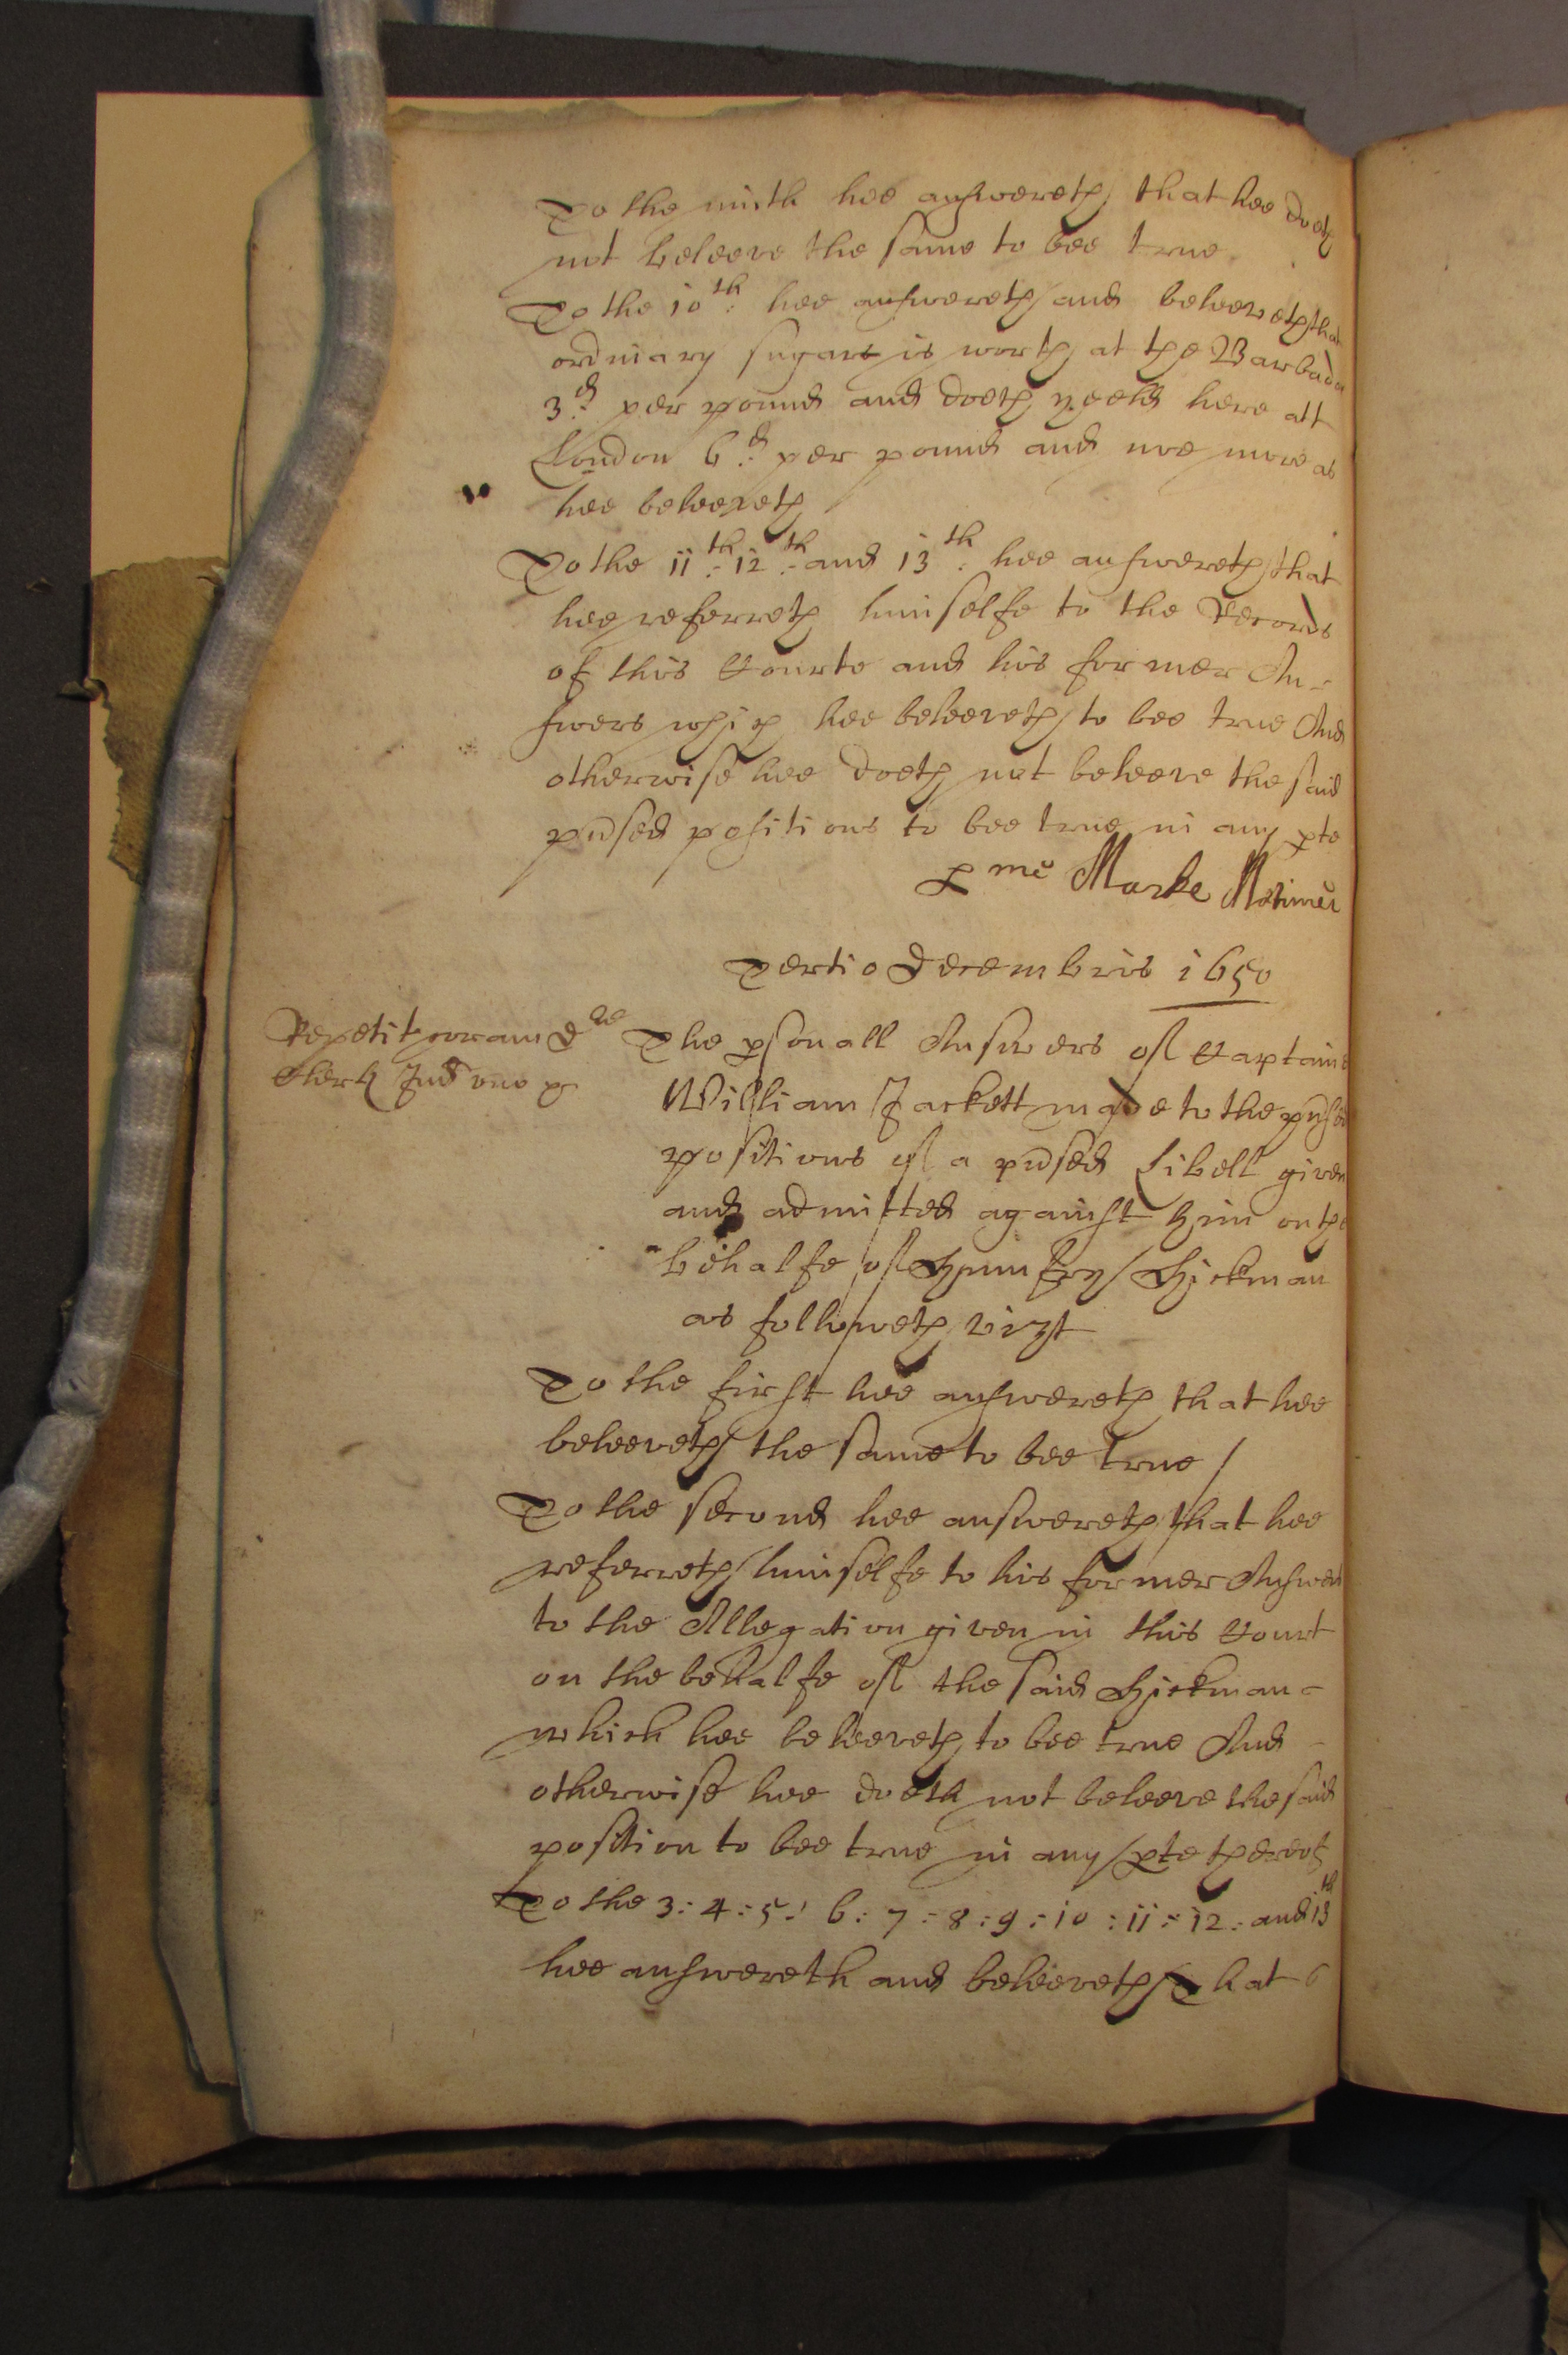 To the ninth hee answereth that hee doeth
not beleeve the same to bee true
To the 10th: hee answereth and beleeveth that
ordinary sugars is worth at the Barbados
3d: per pound and doeth yeeld here att
London 6d: per pound and noe more as
hee beleeveth
To the 11th: 12th: and 13th: hee answereth that
hee referreth himselfe to the Records
of this Courte and his former An-
swers which hee beleeveth to bee true And
otherwise hee doeth not beleeve the said
pnsed positions to bee true in any pte
p me Marke Mortimer
Tertio Decembris 1650
Repetit coram Dre
Clerk Jud uno &
The psonall Answers of Captaine
William Jackett made to the pnsed
positions of a pnsed Libell given
and admitted against him on the
behalfe of Humfry Hickman
as followeth vizt
To the first hee answereth that hee
beleeveth the same to bee true /
To the second hee answereth that hee
referreth himselfe to his former Answers
to the Allegation given in this Court
on the behalfe of the said Hickman -
which hee beleeveth to bee true And -
otherwise hee doeth not beleeve the said
position to bee true in any pte thereof
To the 3: 4: 5: 6: 7: 8: 9: 10: 11: 12: and 13th
hee answereth and beleeveth That